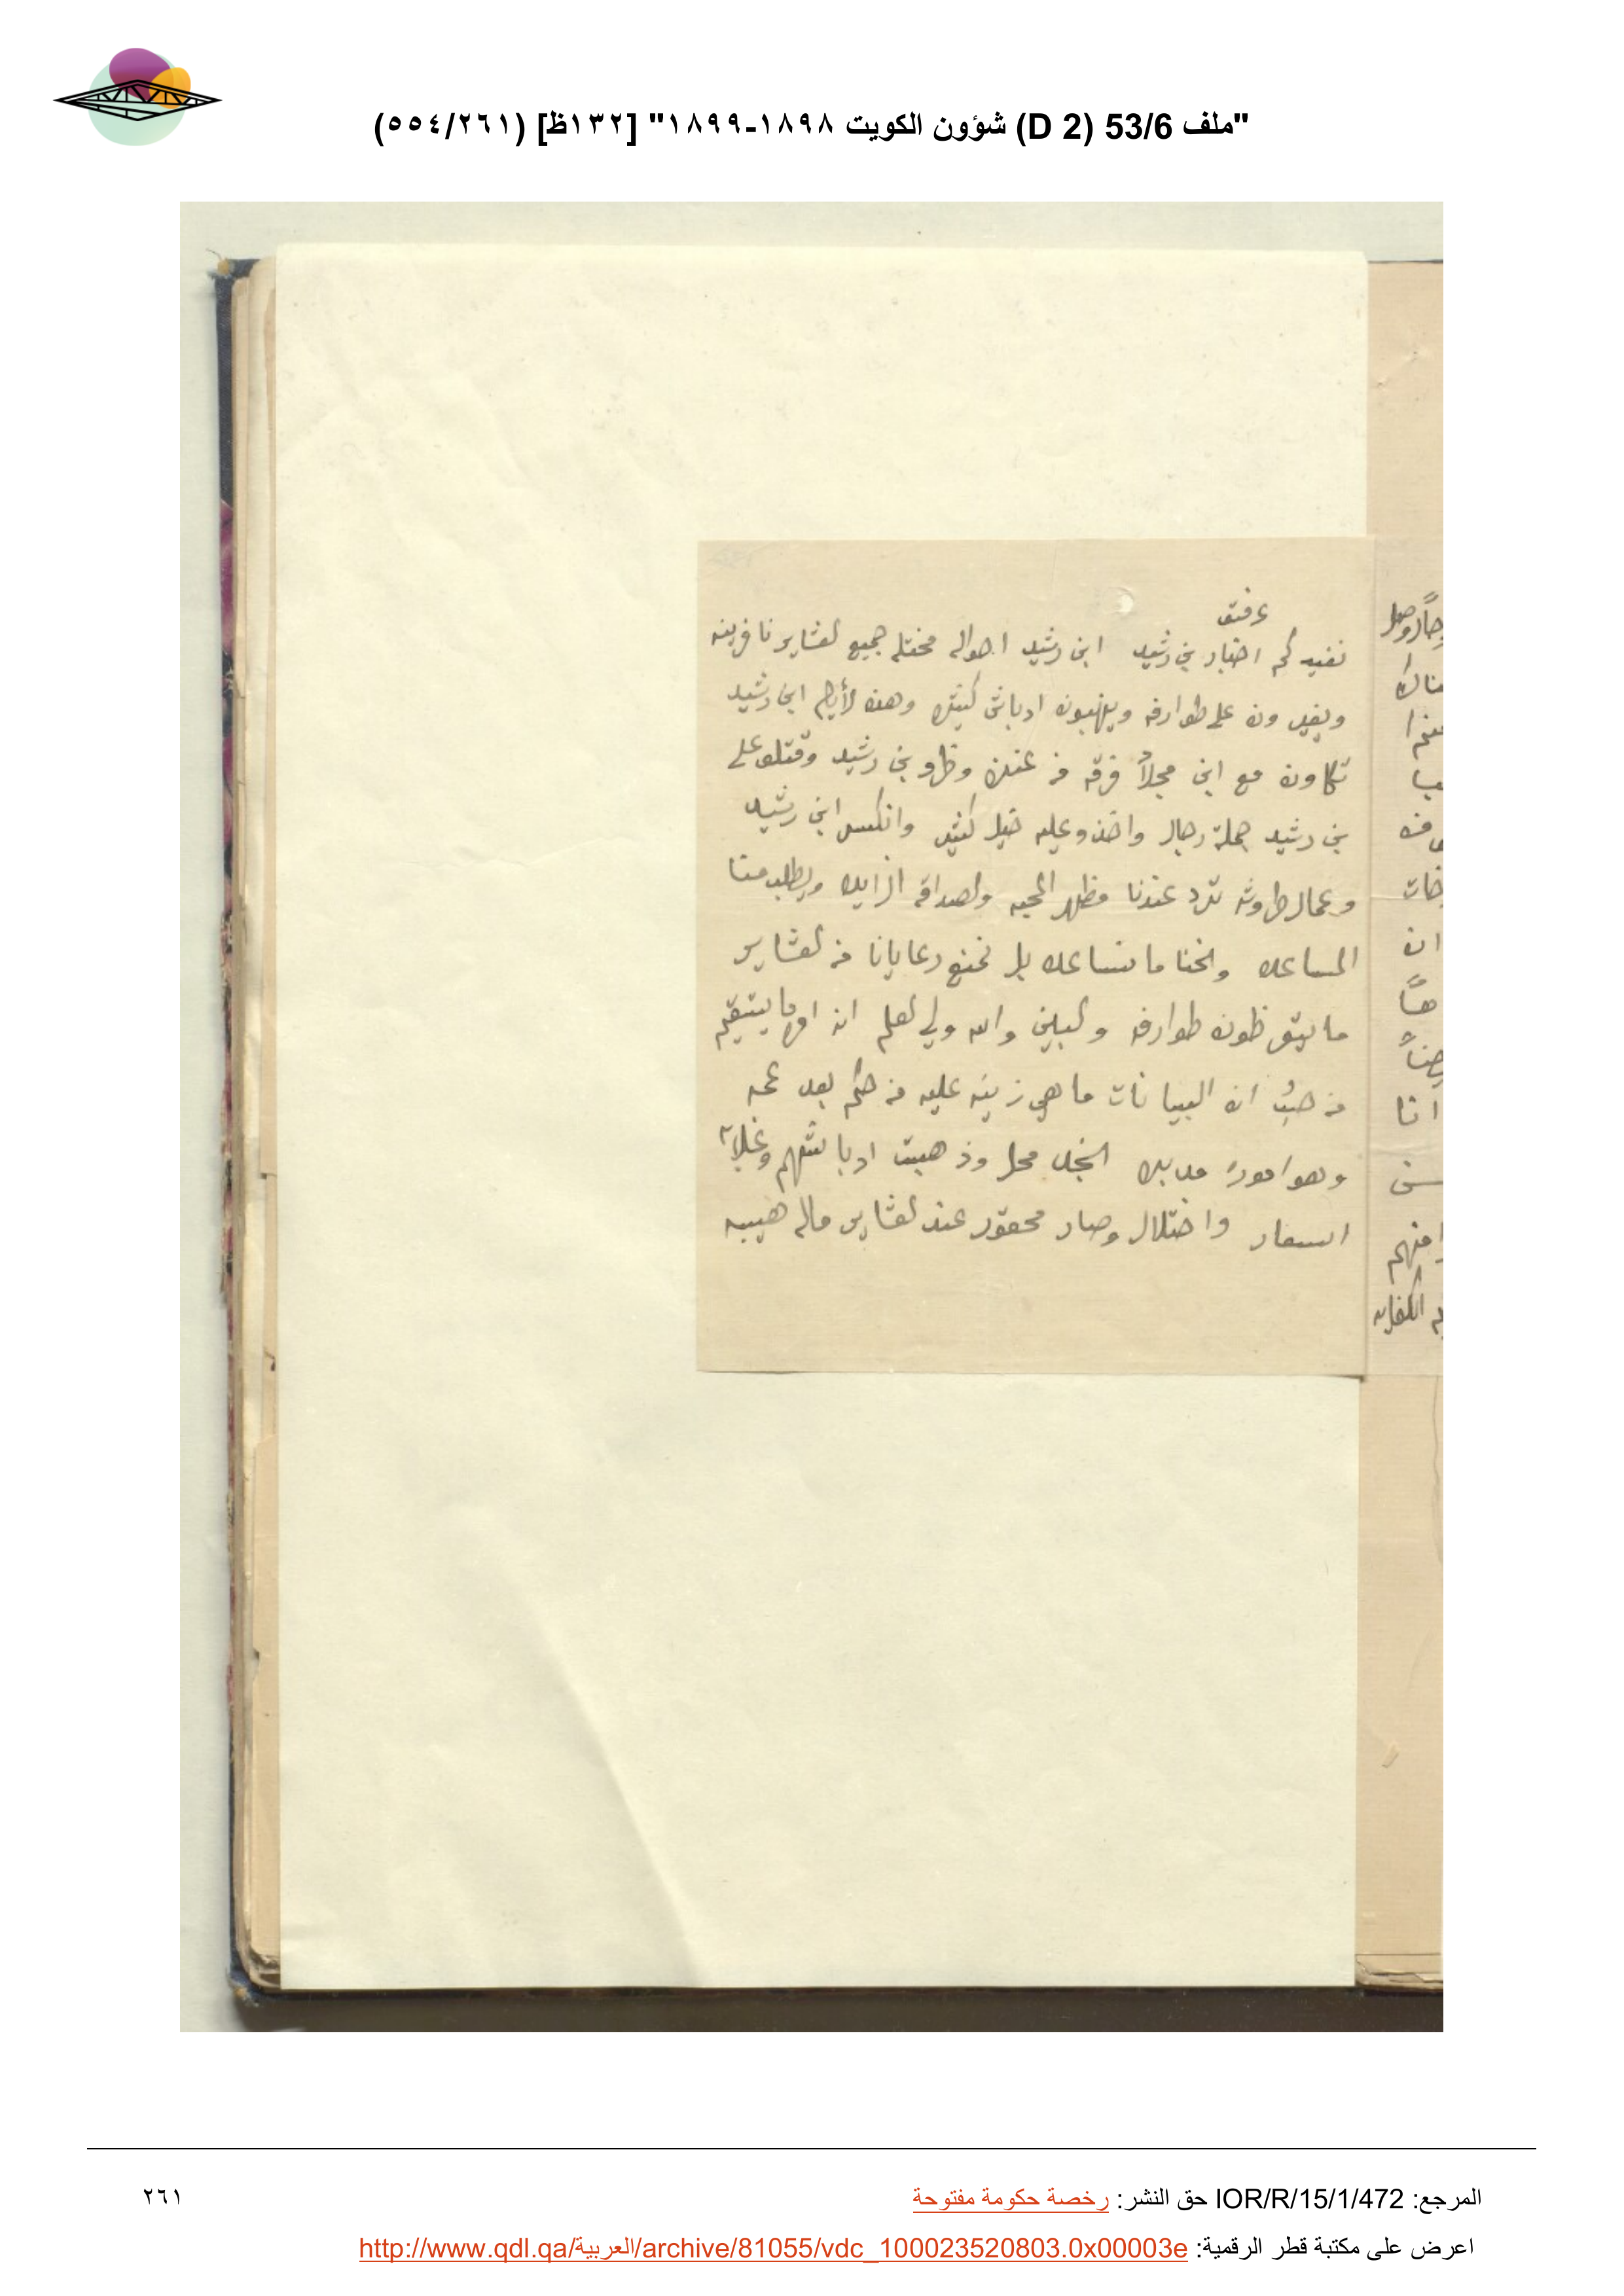 "ملف 53/6 (D 2) شؤون الكويت ١٨٩٨-١٨٩٩" [١٣٢ظ] (٢٦١/٥٥٤)
نفيدكم اخبار بن رشيد ابن رشيد احواله مختله جميع لعشاير نافرينه
ويغيرون على طوارفه وينهبون ادباش كثيره وهذه لأيام ابن رشيد
تكاون مع ابن مجلاد فرقه من عنزه وظهرو بن رشيد وقتلو على
بن رشيد جملة رجال واخذو عليه خيل كثير وانكسر ابن رشيد
وعمال طروشه ترد عندنا مظهر المحبه ولصداقه الزايده ويطلب منا
المساعده واحنا ما نساعده بل نمنع رعايانا من لعشاير
ما يتعرظون طوارفه ولبين والله ولي لعلم ان امره ما يستقيم
من حيث ان البيانات ما هي زينه عليه من حكم بعد عمه
وهو امور مدبره النجد محل وذهبت ادباشهم وغلاة
اسعار واختلال وصار محقور عند لعشاير ماله هيبه
هناك
ان
انا
منهم
المرجع: IOR/R/15/1/472 حق النشر: رخصة حكومة مفتوحة
٢٦١
اعرض على مكتبة قطر الرقمية: http://www.qdl.qa/العربية/archive/81055/vdc_100023520803.0x00003e